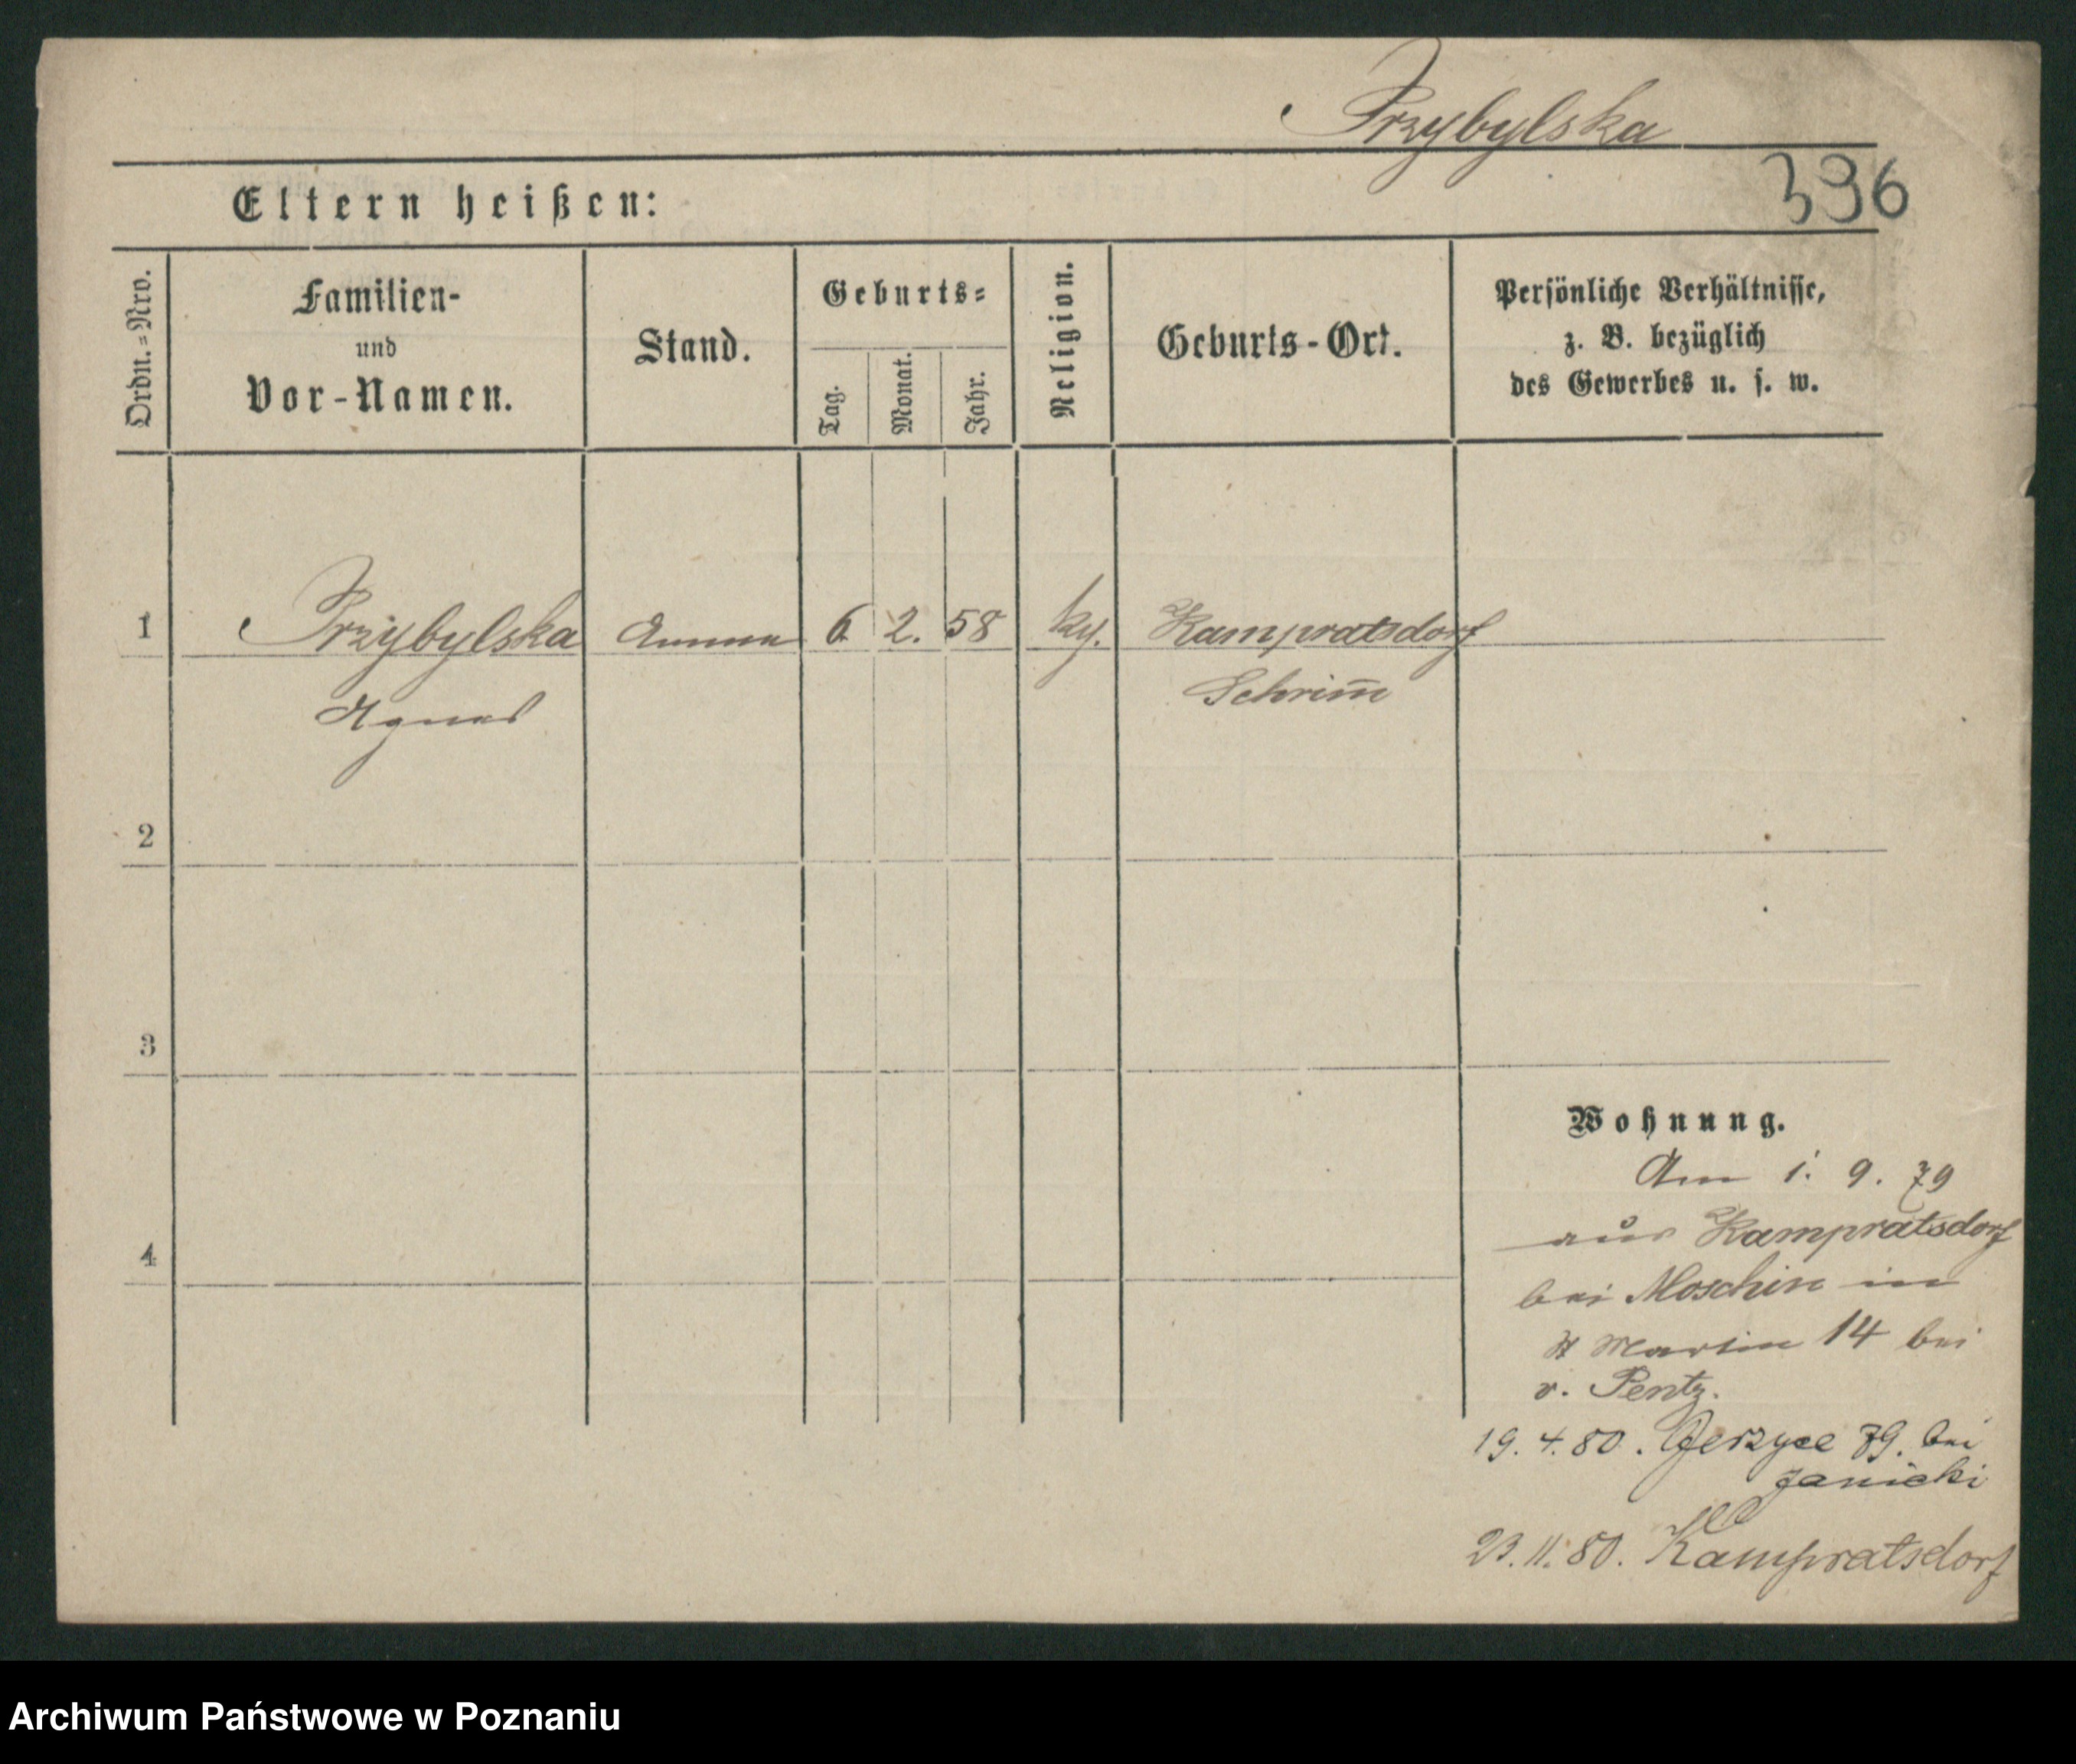 Przybylska
396
Eltern heißen:
Ordn.=Nro.
Familien-
und
Vor-Namen.
Stand.
Geburts=
Tag.
Monat.
Jahr.
Religion.
Geburts-Ort.
Persönliche Verhältnisse,
z. B. bezüglich
des Gewerbes u. s. w.
1 Przybylska Amme 6 2. 58 Kampratsdorf
Agnes Schrim̄
2
3
4
Wohnung.
Am 1. 9. 79
aus Kampratsdorf
bei Moschin in
St Martin 14 bei
v. Pentz.
19. 4. 80. Jerzyce 79. bei
Janicki
23. 11. 80. Kampratsdorf
Archiwum Państwowe w Poznaniu